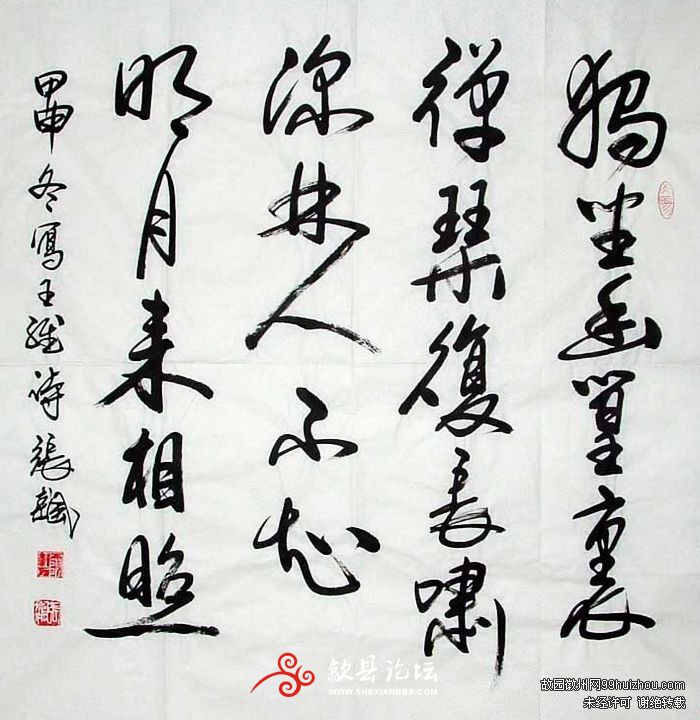 獨坐幽篁裏
彈琴復長嘯
深林人不知
明月来相照
甲申冬寫王維詩 張
歙县论坛
WWW.SHEXIANBBS.COM
故园徽州网99huizhou.com
未经许可 谢绝转载